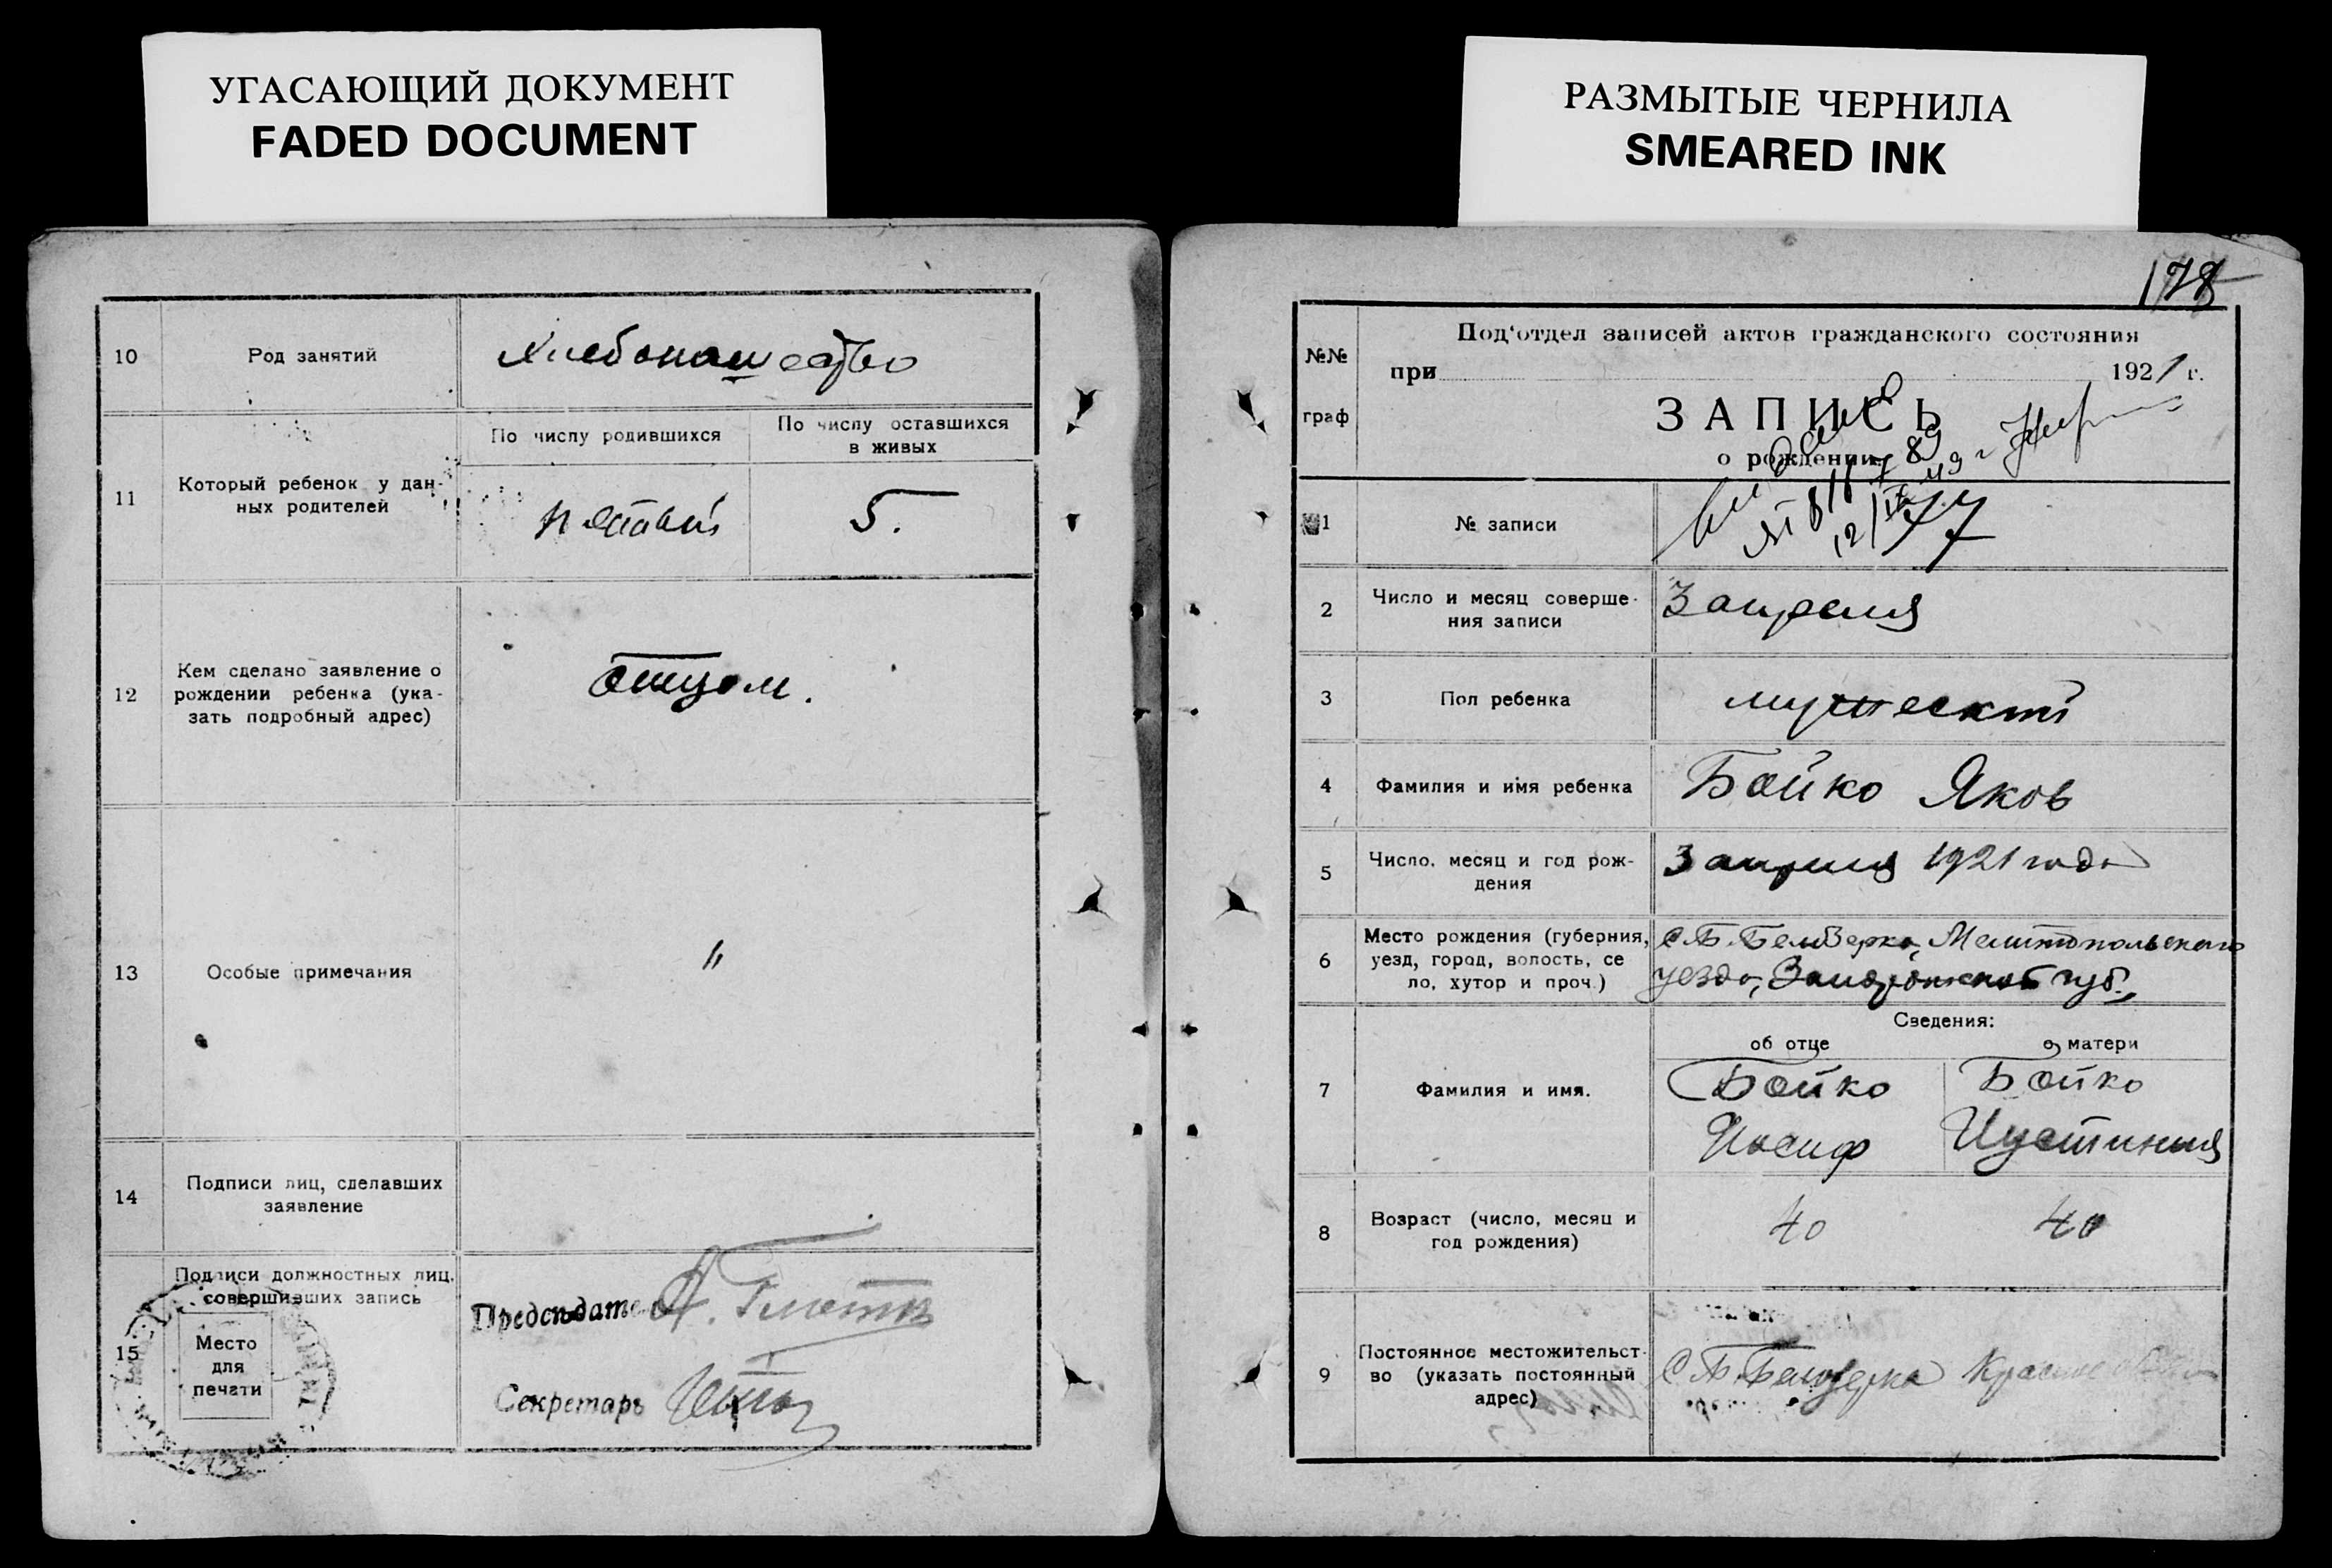 УГАСАЮЩИЙ ДОКУМЕНТ
FADED DOCUMENT
10
Род занятий
Хлебопашество
11
Который ребенок у дан-
ных родителей
По числу родившихся
По числу оставшихся
в живых
пятый
5.
12
Кем сделано заявление о
рождении ребенка (ука-
зать подробный адрес)
Отцом.
13
Особые примечания
"
14
Подписи лиц, сделавших
заявление
15
Подписи должностных лиц,
совершивших запись
Место
для
печати
Председатель
Секретарь
РАЗМЫТЫЕ ЧЕРНИЛА
SMEARED INK
178
№№
граф
Под'отдел записей актов гражданского состояния
при 1921 г.
ЗАПИСЬ
о рождении
1
№ записи
2
Число и месяц соверше-
ния записи
3 апреля
3
Пол ребенка
мужеский
4
Фамилия и имя ребенка
Бойко Яков
5
Число, месяц и год рож-
дения
3 апреля 1921 года
6
Место рождения (губерния,
уезд, город, волость, се
ло, хутор и проч.)
с. Б. Белозерка, Мелитопольского
уезда, Запорожской губ.
Сведения:
об отце
о матери
7
Фамилия и имя.
Бойко
Иосиф
Бойко
Иустиния
8
Возраст (число, месяц и
год рождения)
40
40
9
Постоянное местожительст-
во (указать постоянный
адрес)
С. Б. Белозерка